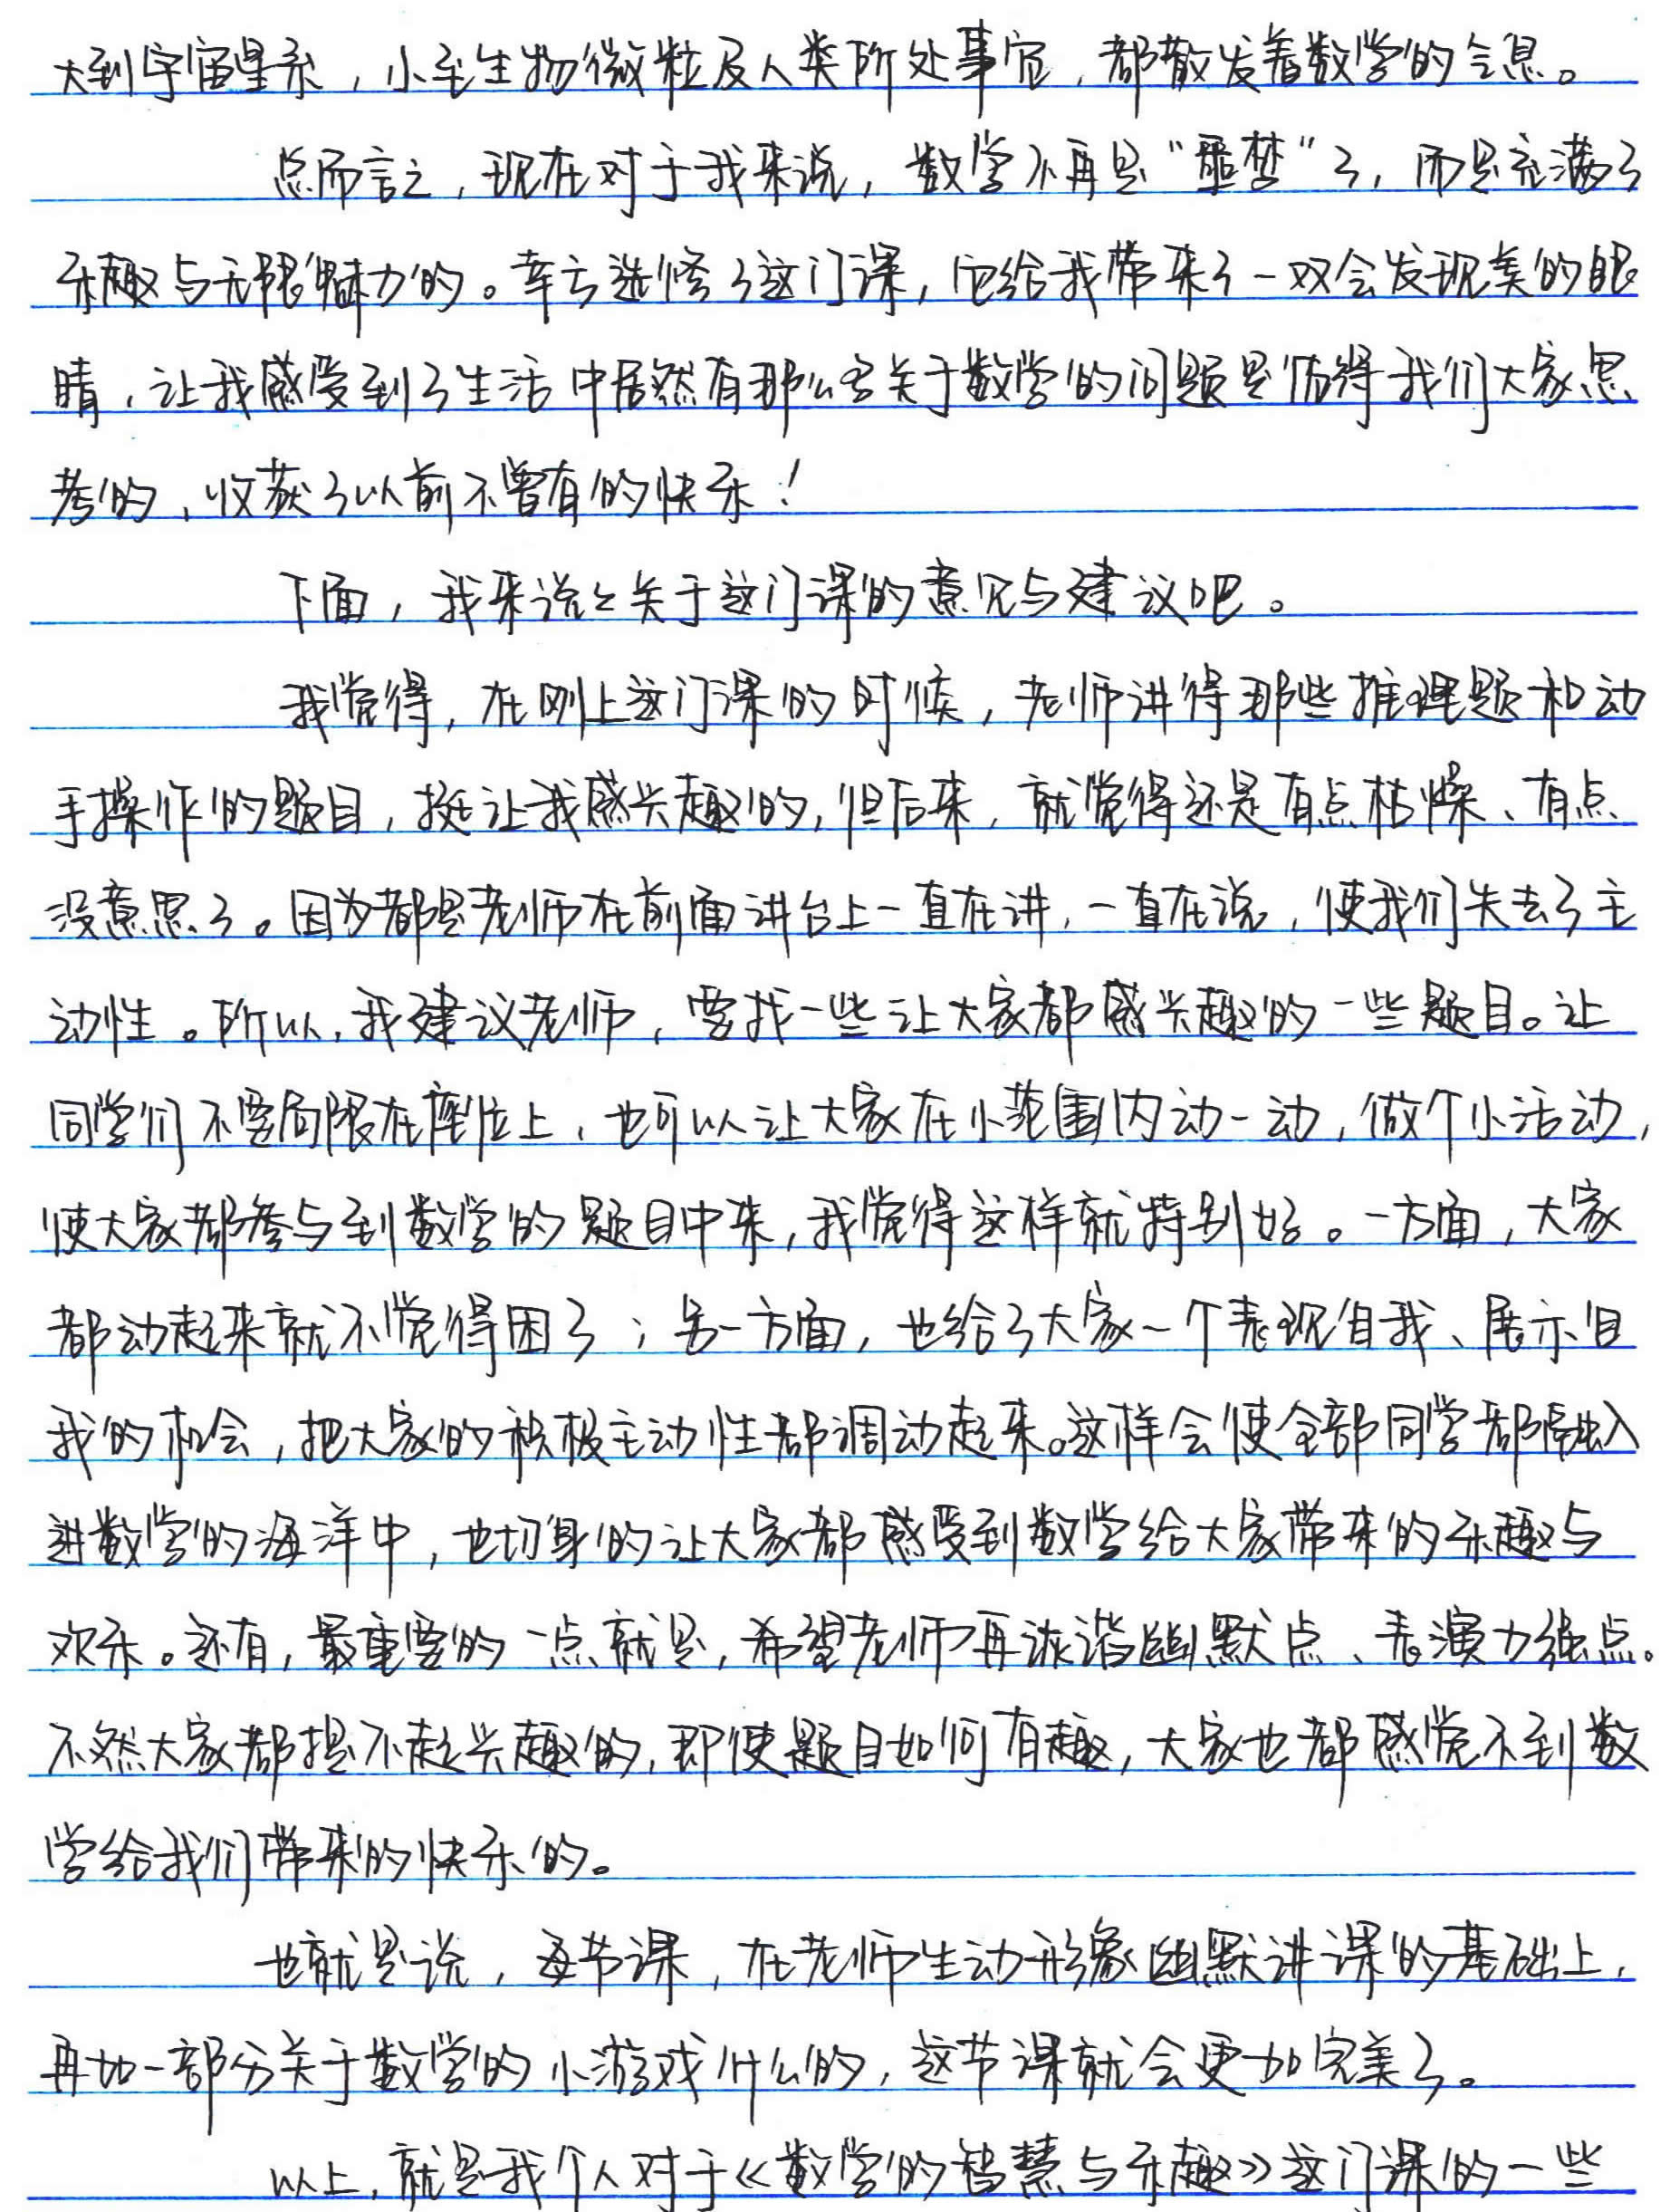 大到宇宙星系，小至生物微粒及人类所处事宜，都散发着数学的气息。
总而言之，现在对于我来说，数学不再是“噩梦”了，而是充满了
乐趣与无限魅力的。幸亏选修了这门课，它给我带来了一双会发现美的眼
睛，让我感受到了生活中居然有那么多关于数学的问题是值得我们大家思
考的，收获了以前不曾有的快乐！
下面，我来说々关于这门课的意见与建议吧。
我觉得，在刚上这门课的时候，老师讲得那些推理题和动
手操作的题目，挺让我感兴趣的，但后来，就觉得还是有点枯燥、有点
没意思了。因为都是老师在前面讲台上一直在讲，一直在说，使我们失去了主
动性。所以，我建议老师，要找一些让大家都感兴趣的一些题目。让
同学们不要局限在座位上，也可以让大家在小范围内动一动，做个小活动，
使大家都参与到数学的题目中来，我觉得这样就特别好。一方面，大家
都动起来就不觉得困了；另一方面，也给了大家一个表现自我、展示自
我的机会，把大家的积极主动性都调动起来。这样会使全部同学都融入
进数学的海洋中，也切身的让大家都感受到数学给大家带来的乐趣与
欢乐。还有，最重要的一点就是，希望老师再诙谐幽默点、表演力强点。
不然大家都提不起兴趣的，即使题目如何有趣，大家也都感觉不到数
学给我们带来的快乐的。
也就是说，每节课，在老师生动形象幽默讲课的基础上，
再加一部分关于数学的小游戏什么的，这节课就会更加完美了。
以上，就是我个人对于《数学的智慧与乐趣》这门课的一些